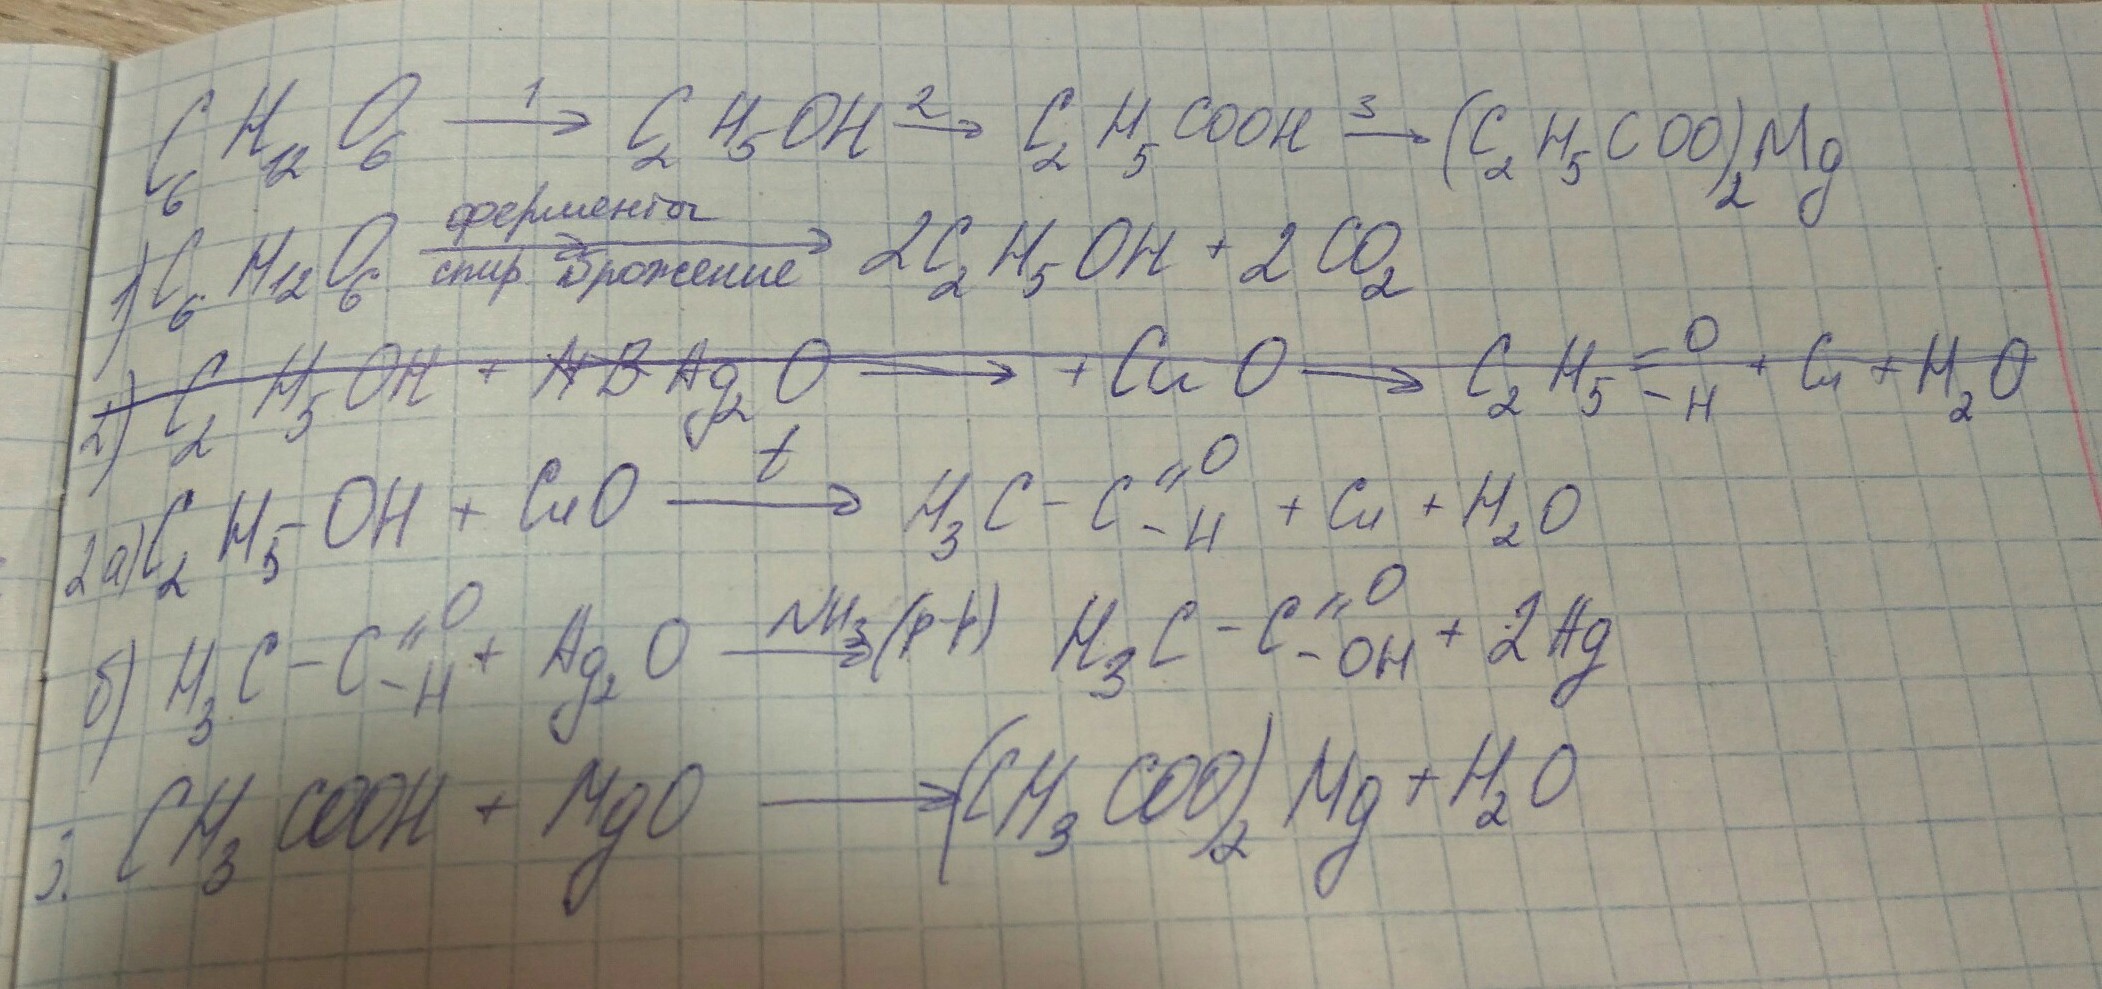 C₆H₁₂O₆ —1→ C₂H₅OH —2→ C₂H₅COOH —3→ (C₂H₅COO)₂Mg
1) C₆H₁₂O₆ ферменты → спир. брожение 2C₂H₅OH + 2CO₂
2) C₂H₅OH + Ag₂O → + CuO → C₂H₅ =O -H + Cu + H₂O
2а) C₂H₅-OH + CuO —t→ H₃C-C =O -H + Cu + H₂O
б) H₃C-C =O -H + Ag₂O —NH₃(р-р)→ H₃C-C =O -OH + 2Ag
3. CH₃COOH + MgO → (CH₃COO)₂Mg + H₂O